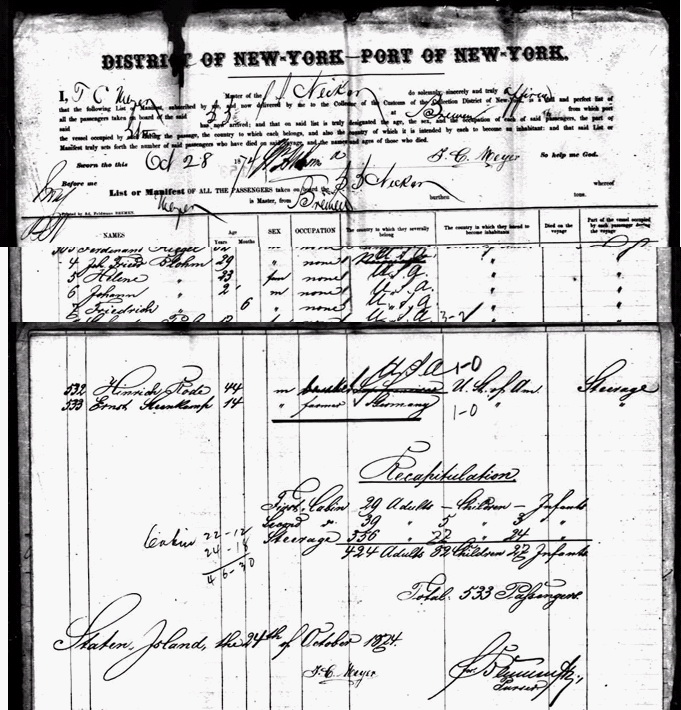 DISTRICT OF NEW-YORK—PORT OF NEW-YORK.
I, F C Meyer Master of the S S Neckar do solemnly, sincerely and truly
that the following List of Manifest, subscribed by me, and now delivered by me to the Collector of the Customs of the Collection District of New-York, is a full and perfect list of
all the passengers taken on board of the said S S at Bremen from which port
said has now arrived; and that on said list is truly designated the age, the sex, and the occupation of each of said passengers, the part of
the vessel occupied by during the passage, the country to which each belongs, and also the country of which it is intended by each to become an inhabitant: and that said List or
Manifest truly sets forth the number of said passengers who have died on said voyage, and the names and ages of those who died.
Sworn this Oct 28 187 F. C. Meyer So help me God.
Before me
List or Manifest OF ALL THE PASSENGERS taken on board the S S Neckar whereof
Meyer is Master, from Bremen burthen tons.
Printed by Ad. Feldmann BREMEN.
NAMES Age Years Months SEX OCCUPATION The country to which they severally belong The country to which they intend to become inhabitants Died on the voyage Part of the vessel occupied by each passenger during the voyage
Ferdinand
4 Joh. Fried. Blohm 29 " none U. S. a.
5 Helene " 23 fem none U. S. a.
6 Johann " 2 m none U. S. a.
7 Friedrich " 6 " none U. S. a.
U. S. A. 3-2
U S a 1-0
532 Hinrich Rode 44 m U. S. of Am. Steerage
533 Ernst Stenkamp 14 " farmer Germany " "
1-0
Recapitulation.
First Cabin 29 Adults — Children — Infants
Second " 39 " 5 " 3 "
Steerage 356 " 27 " 24 "
424 Adults 32 Children 27 Infants
Cabin 22-12
24-18
46-30
Total: 533 Passengers.
Staten-Island, the 24th of October 1874.
F. C. Meyer
Purser